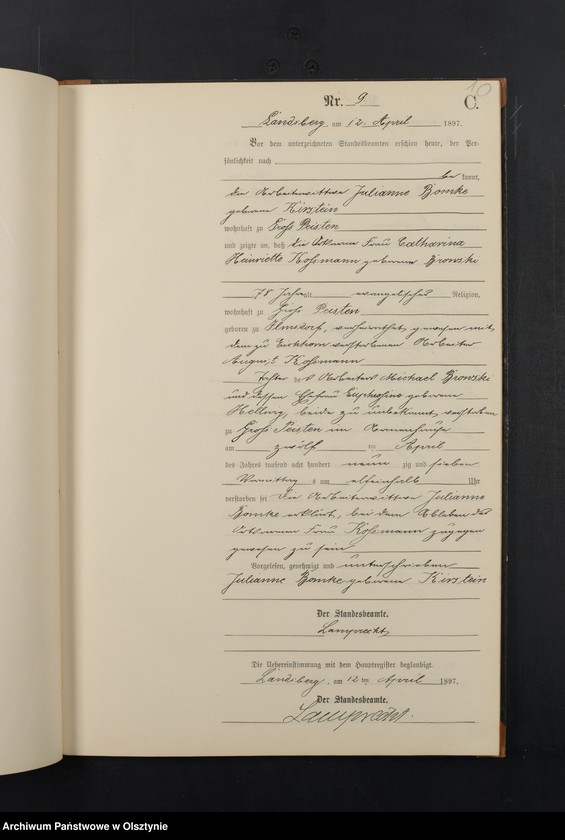 10
Nr. 9. C.
Landsberg, am 12. April 1897.
Vor dem unterzeichneten Standesbeamten erschien heute, der Per-
sönlichkeit nach
be kannt,
die Arbeiterwittwe Julianne Bomke
geborene Kirstein
wohnhaft zu Groß Peisten
und zeigte an, daß die Ortsarme Frau Catharina
Heinriette Koßmann geborene Bronski
78 Jahre alt evangelischer Religion,
wohnhaft zu Groß Peisten
geboren zu verheirathet gewesen mit
dem zu verstorbenen Arbeiter
August Koßmann
Tochter des Arbeiters Michael Bronski
und dessen Ehefrau Euphrosine geborene
Hellwig, beide zu unbekannt verstorben
zu Groß Peisten im Armenhause
am zwölf ten April
des Jahres tausend acht hundert neun zig und sieben
Vormittag s um elfeinhalb Uhr
verstorben sei. Die Arbeiterwittwe Julianne
Bomke erklärt, bei dem Ableben der
Ortsarmen Frau Koßmann zugegen
gewesen zu sein
Vorgelesen, genehmigt und unterschrieben
Julianne Bomke geborene Kirstein
Der Standesbeamte.
Lamprecht
Die Uebereinstimmung mit dem Hauptregister beglaubigt.
Landsberg, am 12ten April 1897.
Der Standesbeamte.
Lamprecht.
Archiwum Państwowe w Olsztynie